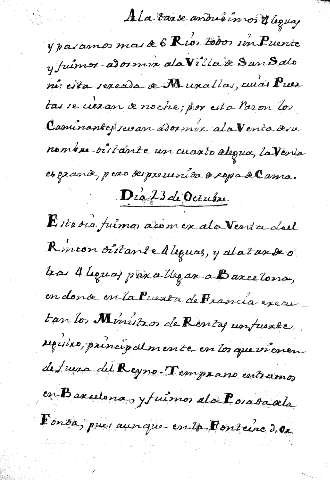 A la tarde andubimos 4 leguas
y pasamos mas de 6 Rios todos sin Puente
y fuimos a dormir a la Villa de San Salo
ni esta sercada de Murallas, cuias Puer
tas se cieran de noche; por esta Razon los
Caminantes se van a dormir a la Venta de su
nombre distante un cuarto de legua, la Venta
es grande, pero desproveida de ropa de Cama.
Dia 23 de Octubre.
Este dia fuimos a comer a la Venta del
Rincon distante 4 leguas, y a la tarde o
tras 4 leguas para llegar a Barcelona,
en donde en la Puerta de Francia execu
tan los Ministros de Rentas un fuerte
registro, principalmente en los que vienen
de fuera del Reyno. Temprano entramos
en Barcelona, y fuimos a la Posada de la
Fonda; pues aunque en la Fonteine d, Or